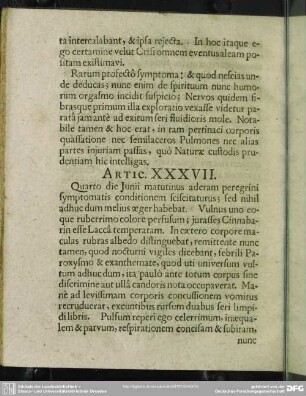 ta intercalabant, & ipsa rejecta. In hoc itaque e-
go certamine velut Crisi omnem eventus aleam po-
sitam existimavi.
Rarum profectò symptoma: & quod nescias un-
de deducas; nunc enim de spirituum nunc humo-
rum orgasmo incidit suspicio; Nervos quidem fi-
brasque primum illa exploratio vexasse videtur pa-
ratâ jam antè ad exitum seri fluidioris mole. Nota-
bile tamen & hoc erat, in tam pertinaci corporis
quassatione nec semilaceros Pulmones nec alias
partes injuriam passas, quò Naturæ custodis pru-
dentiam hic intelligas.
ARTIC. XXXVII.
Quarto die Junii matutinus aderam peregrini
symptomatis conditionem sciscitaturus; sed nihil
adhuc dum melius æger habebat. Vulnus uno eo-
que ruberrimo colore perfusum; jurasses Cinnaba-
rin esse Laccâ temperatam. In cætero corpore ma-
culas rubras albedo distinguebat, remittente nunc
tamen, quod nocturni vigiles dicebant, febrili Pa-
roxysmo & exanthemate, quod uti universum vul-
tum adhuc dum, ita paulò ante totum corpus sine
discrimine aut ullâ candoris nota occupaverat. Ma-
nè ad levissimam corporis concussionem vomitus
recruduerat, exeuntibus rursum duabus seri limpi-
di libris. Pulsum reperi ego celerrimum, inæqua-
lem & parvum, respirationem concisam & subitam,
nunc